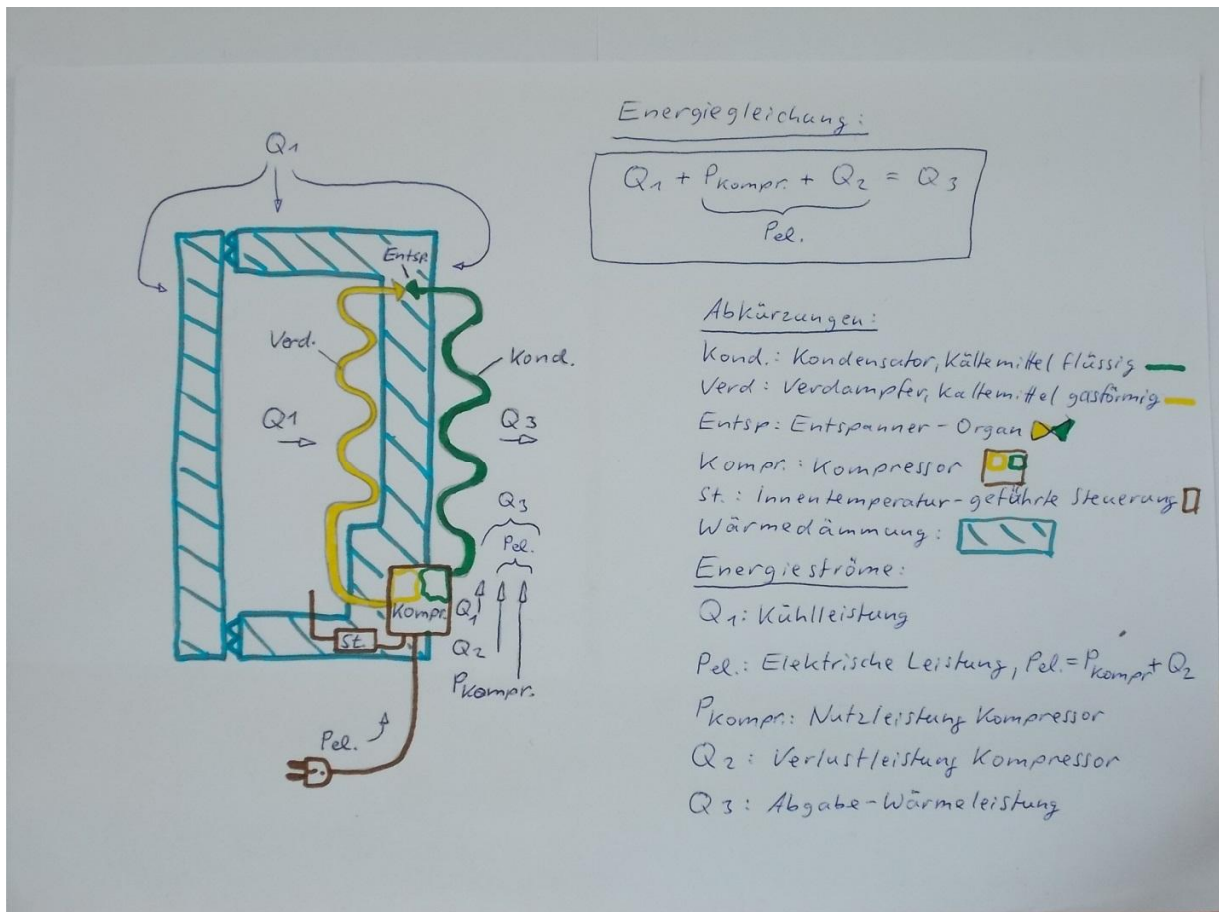 Q1
Entsp.
Verd.
Kond.
Q1
Q3
Q3
Pel.
Kompr.
Q1
St.
Q2
PKompr.
Pel.
Energiegleichung:
Q1 + PKompr. + Q2 = Q3
Pel.
Abkürzungen:
Kond.: Kondensator, Kältemittel flüssig
Verd: Verdampfer, Kaltemittel gasförmig
Entsp: Entspanner-Organ
Kompr.: Kompressor
St.: Innentemperatur-geführte Steuerung
Wärmedämmung:
Energieströme:
Q1: Kühlleistung
Pel.: Elektrische Leistung, Pel.=PKompr+Q2
PKompr.: Nutzleistung Kompressor
Q2: Verlustleistung Kompressor
Q3: Abgabe-Wärmeleistung